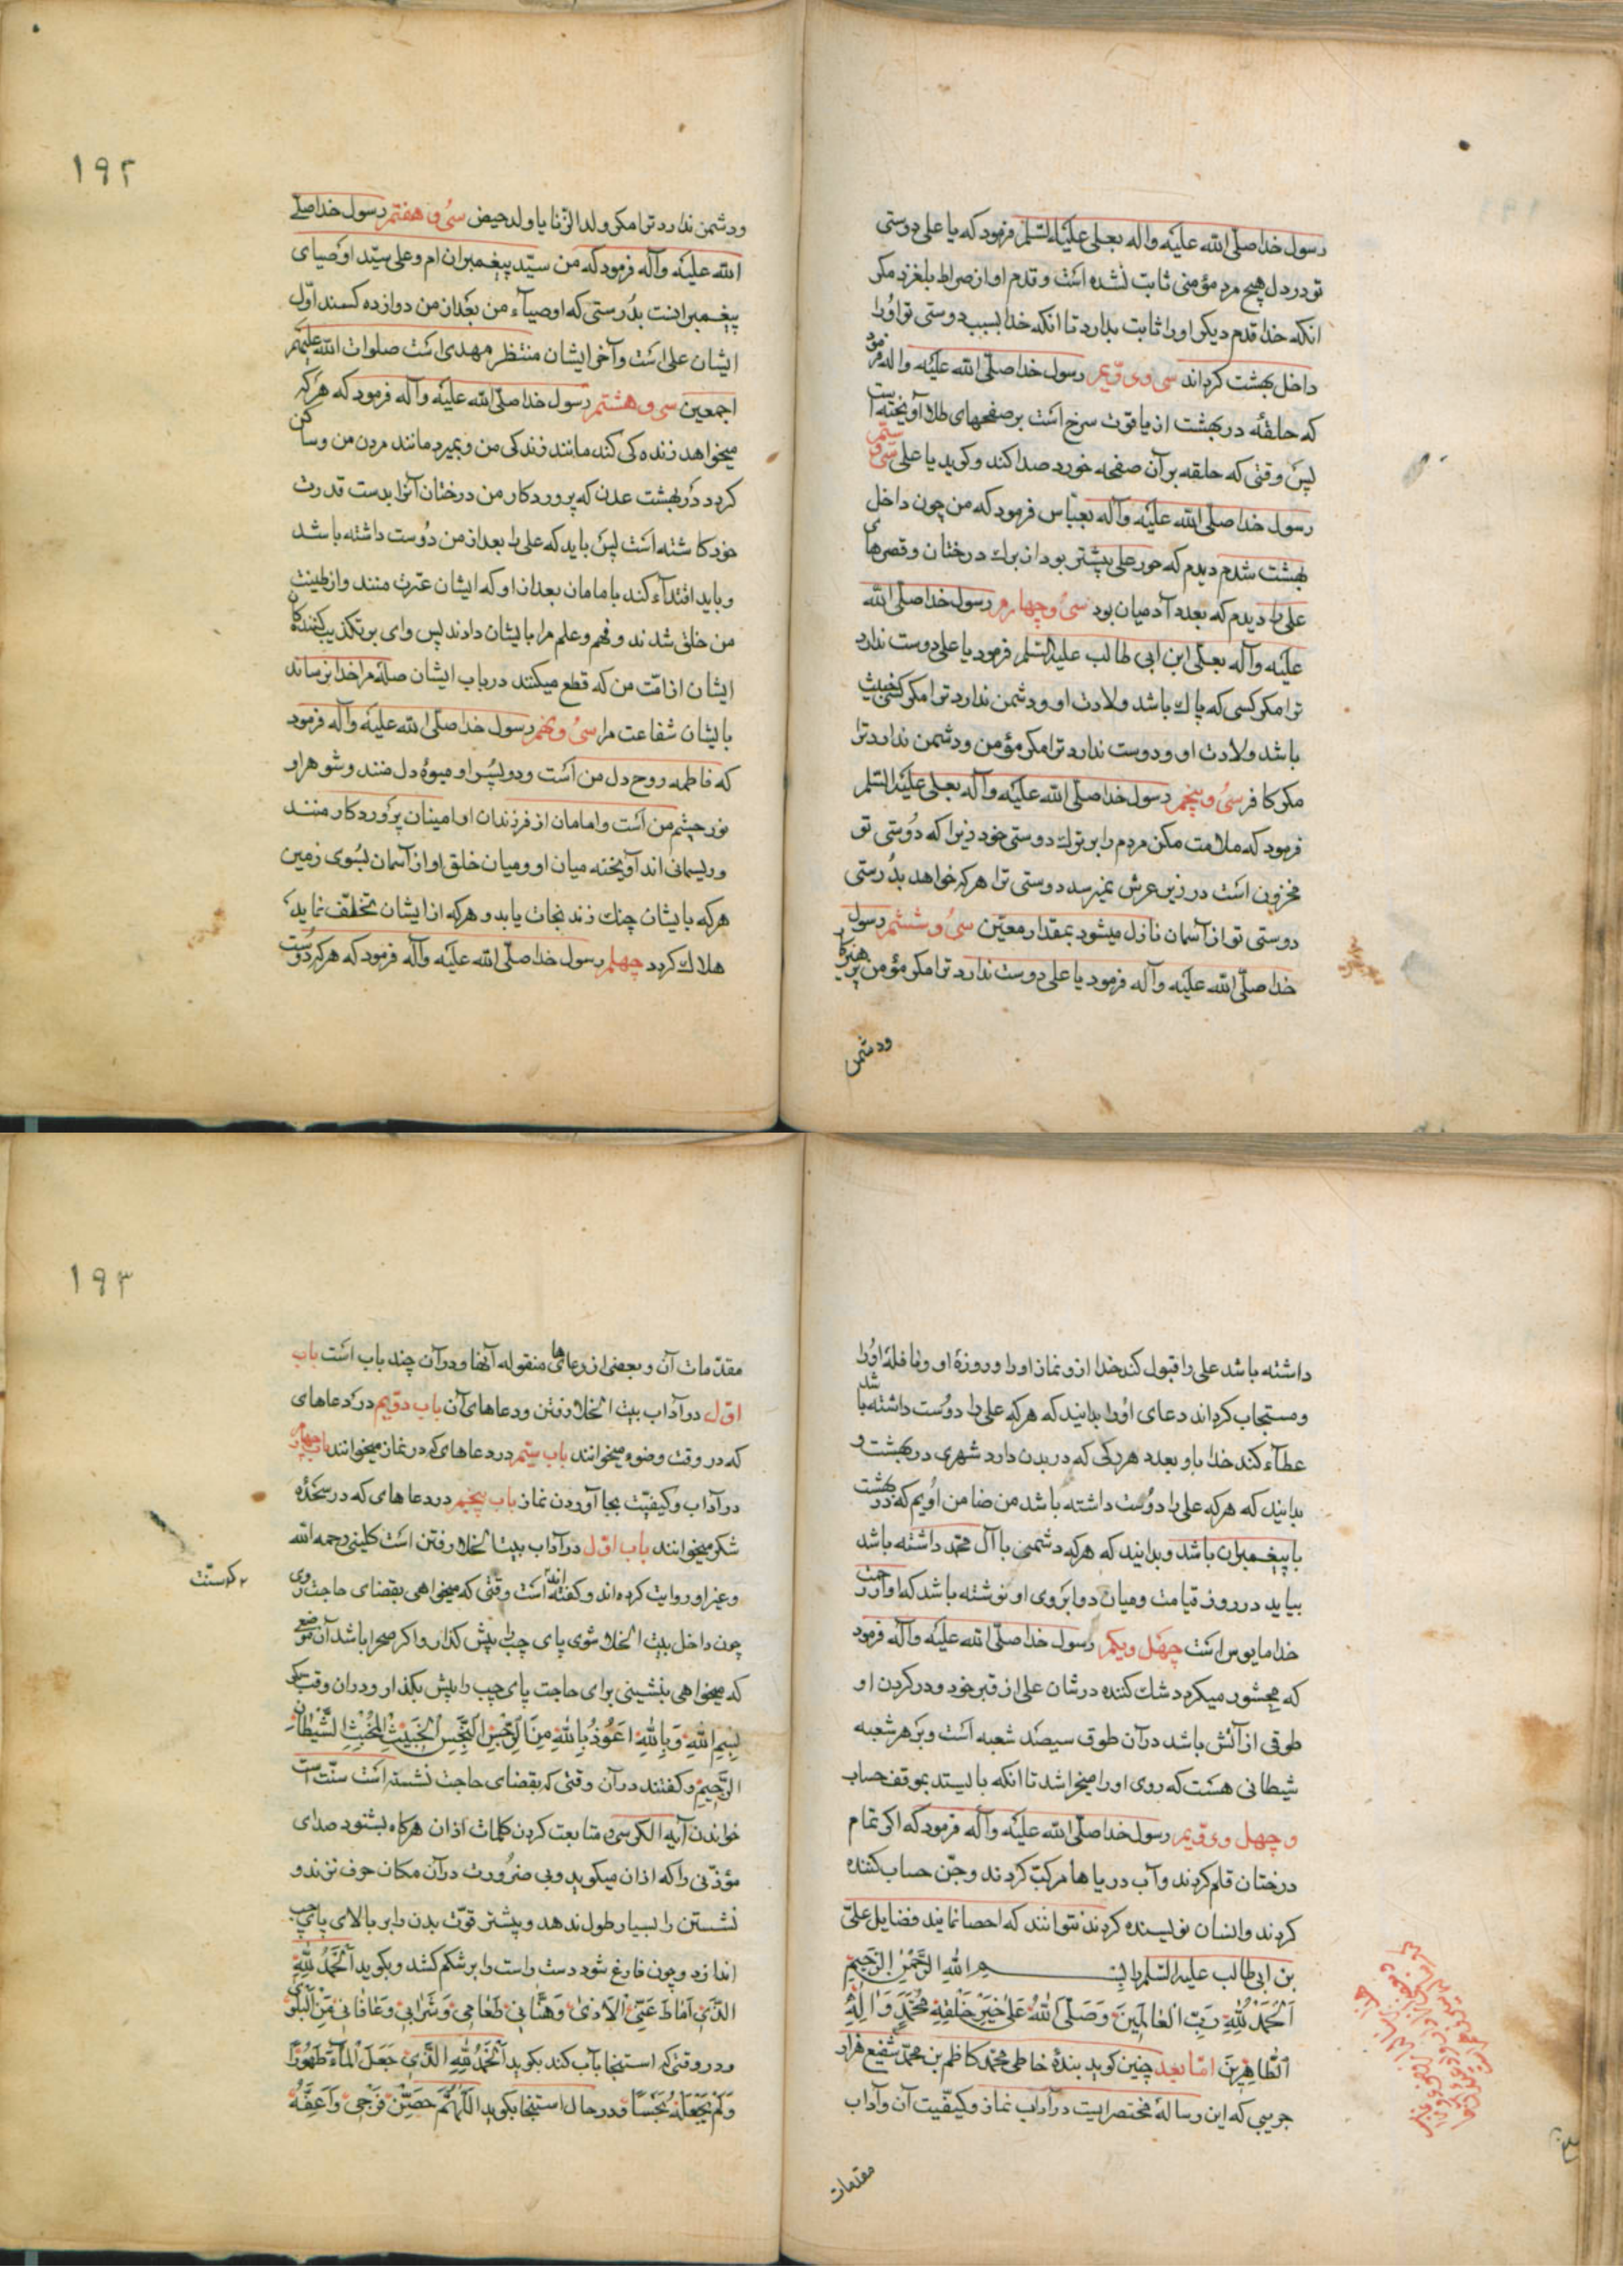 رسول خدا صلّی الله علیه واله بعلی علیه السّلم فرمود که یا علی دوستی
تو در دل هیچ مرد مؤمنی ثابت نشده است و قدم او از صراط بلغزد مکر
انکه خدا قدم دیکر او را ثابت بدارد تا انکه خدا بسبب دوستی تو او را
داخل بهشت کرداند سی و دویم رسول خدا صلّی الله علیه واله فرمود
که حلقهٔ در بهشت از یاقوت سرخ است بر صفحهای طلا آویخته است
پس وقتی که حلقه بر آن صفحه خورد صدا کند و کوید یا علی سی و سیّم
رسول خدا صلّی الله علیه وآله بعبّاس فرمود که من چون داخل
بهشت شدم دیدم که حور علی بیشتر بود از برك درختان و قصرهای
علی را دیدم که بعدد آدمیان بود سی و چهارم رسول خدا صلّی الله
علیه وآله بعلی ابن ابی طالب علیه السّلم فرمود یا علی دوست ندارد
ترا مکر کسی که پاك باشد ولادت او و دشمن ندارد ترا مکر کسی خبیث
باشد ولادت او و دوست ندارد ترا مکر مؤمن و دشمن ندارد ترا
مکر کافر سی و پنجم رسول خدا صلّی الله علیه وآله بعلی علیه السّلم
فرمود که ملامت مکن مردم را بر ترك دوستی خود زیرا که دوستی تو
مخزون است در زیر عرش نمیرسد دوستی ترا هر که خواهد بدرستی
دوستی تو از آسمان نازل میشود بمقدار معیّن سی و ششم رسول
خدا صلّی الله علیه وآله فرمود یا علی دوست ندارد ترا مکر مؤمن پرهیزکار
ودشمن
١٩٢
ودشمن ندارد ترا مکر ولد الزّنا یا ولد حیض سی و هفتم رسول خدا صلّی
الله علیه وآله فرمود که من سیّد پیغمبران ام و علی سیّد اوصیای
پیغمبرانست بدرستی که اوصیآء من بعد از من دوازده کسند اوّل
ایشان علی است وآخر ایشان منتظر مهدی است صلوات الله علیهم
اجمعین سی و هشتم رسول خدا صلّی الله علیه وآله فرمود که هر که
میخواهد زنده کی کند مانند زندکی من و بمیرد مانند مردن من و ساکن
کردد در بهشت عدن که پروردکار من درختان آنرا بدست قدرت
خود کاشته است پس باید که علی را بعد از من دوست داشته باشد
و باید اقتدآء کند بامامان بعد از او که ایشان عترت منند و از طینت
من خلق شدند و فهم و علم مرا بایشان دادند پس وای بر تکذیب کنندهکان
ایشان از امّت من که قطع میکنند در باب ایشان صلهٔ مرا خدا نرساند
بایشان شفاعت مرا سی و نهم رسول خدا صلّی الله علیه وآله فرمود
که فاطمه روح دل من است و دو پسر او میوهٔ دل منند و شوهر او
نور چشم من است و امامان از فرزندان او امینان پروردکار منند
و ریسمانی اند آویخته میان او و میان خلق او از آسمان بسوی زمین
هر که بایشان چنك زند نجات یابد و هر که از ایشان تخلّف نماید
هلاك کردد چهلم رسول خدا صلّی الله علیه وآله فرمود که هر که دوست
داشته باشد علی را قبول کند خدا از او نماز او را و روزهٔ او و نافلهٔ او را
و مستجاب کرداند دعای او را بدانید که هر که علی را دوست داشته باشد
عطآء کند خدا باو بعدد هر رکی که در بدن دارد شهری در بهشت و
بدانید که هر که علی را دوست داشته باشد من ضامن اویم که در بهشت
با پیغمبران باشد و بدانید که هر که دشمنی با آل محمّد داشته باشد
بیاید در روز قیامت و میان دو ابروی او نوشته باشد که او از رحمت
خدا مایوس است چهل و یکم رسول خدا صلّی الله علیه وآله فرمود
که محشور میکردد شك کننده در شان علی از قبر خود و در کردن او
طوقی از آتش باشد در آن طوق سیصد شعبه است و بر هر شعبه
شیطانی هست که روی او را میخراشد تا انکه بایستد بموقف حساب
و چهل و دویم رسول خدا صلّی الله علیه وآله فرمود که اکر تمام
درختان قلم کردند وآب دریاها مرکّب کردند و جنّ حساب کننده
کردند و انسان نویسنده کردند نتوانند که احصا نمایند فضایل علیّ
بن ابی طالب علیه السّلم را بسم الله الرّحمن الرّحیم
اَلحَمدُ لِلّهِ رَبِّ العالَمینَ وَصَلَّی اللهُ عَلی خَیرِ خَلقِهِ مُحَمَّدٍ وَالِهِ
الطّاهِرینَ امّا بعد چنین کوید بندهٔ خاطی محمّد کاظم بن محمّد شفیع هزار
جریبی که این رسالهٔ مختصرایست در آداب نماز و کیفیّت آن وآداب
مقدّمات
١٩٣
مقدّمات آن و بعضی از دعاهای منقوله آنها و در آن چند باب است باب
اوّل در آداب بیت الخلا رفتن و دعاهای آن باب دویم در دعاهای
که در وقت وضوء میخوانند باب سیّم در دعاهای که در نماز میخوانند باب چهارم
در آداب و کیفیّت بجا آوردن نماز باب پنجم در دعاهای که در سجدهٔ
شکر میخوانند باب اوّل در آداب بیت الخلا رفتن است کلینی رحمه الله
و غیر او روایت کرده اند و کفته اند است وقتی که میخواهی بقضای حاجت روی
که سنّت
چون داخل بیت الخلا شوی پای چپ را پیش کذار و اکر صحرا باشد آن موضعی
که میخواهی بنشینی برای حاجت پای چپ را پیش بکذار و در ان وقت بکو
بِسمِ اللهِ وَبِاللهِ اَعُوذُ بِاللهِ مِنَ الرِّجسِ النَّجِسِ الخَبیثِ المُخبِثِ الشَّیطانِ
الرَّجیمِ و کفتند در آن وقتی که بقضای حاجت نشسته است سنّت است
خواندن آیه الکرسی و متابعت کردن کلمات اذان هرکاه بشنود صدای
مؤذّنی را که اذان میکوید و بی ضرورت در آن مکان حرف نزند و
نشستن را بسیار طول ندهد و بیشتر قوّت بدن را بر بالای پای چپ
اندازد و چون فارغ شود دست راست را بر شکم کشد و بکوید اَلحَمدُ لِلّهِ
الَّذی اَماطَ عَنِّی الاَذی وَهَنَّأَنی طَعامی وَشَرابی وَعافانی مِنَ البَلوی
و در وقتی که استنجا بآب کند بکوید اَلحَمدُ لِلّهِ الَّذی جَعَلَ المآءَ طَهُورًا
وَلَم یَجعَلهُ نَجَسًا و در حال استنجا بکوید اَللّهُمَّ حَصِّن فَرجی وَاَعِفَّهُ